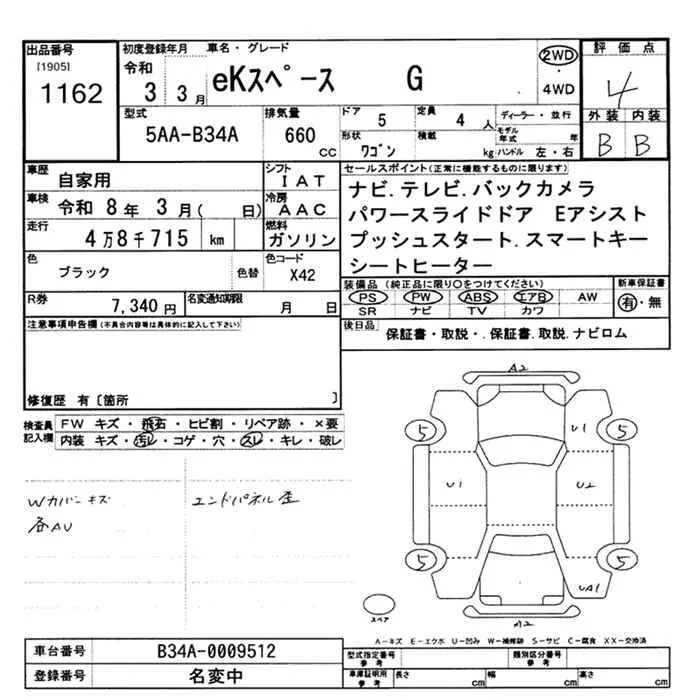 出品番号
[1905]
1162
初度登録年月
令和
3 3月
車名・グレード
eKスペース G
2WD
・
4WD
評価点
4
外装 内装
B B
型式
5AA-B34A
排気量
660
CC
ドア
5
定員
4 人
ディーラー・並行
形状
ワゴン
積載
kg
モデル年式 年
ハンドル 左・右
車歴
自家用
車検
令和 8年 3月( 日)
走行
4万8千715 km
シフト
IAT
冷房
AAC
燃料
ガソリン
色
ブラック
色替
色コード
X42
R券
7,340円
名変通知期限
月 日
セールスポイント(正常に機能するものに限ります)
ナビ.テレビ.バックカメラ
パワースライドドア Eアシスト
プッシュスタート.スマートキー
シートヒーター
装備品(純正品に限り○をつけてください)
PS PW ABS エアB AW
SR ナビ TV カワ
新車保証書
有・無
後日品
保証書・取説・.保証書.取説.ナビロム
注意事項申告欄(不具合内容等は具体的に記入して下さい)
修復歴 有〔箇所 〕
検査員
記入欄
FW キズ・飛石・ヒビ割・リペア跡・×要
内装 キズ・汚レ・コゲ・穴・スレ・キレ・破レ
Wカバーキズ
各AU
エンドパネル歪
A2
5
U1
5
U1
U2
5
5
UA1
A2
スペア
A-キズ E-エクボ U-凹み W-補修跡 S-サビ C-腐食 XX-交換済
車台番号
B34A-0009512
登録番号
名変中
型式指定番号
参考
類別区分番号
参考
車庫証明用
参考
長さ cm
幅 cm
高さ cm